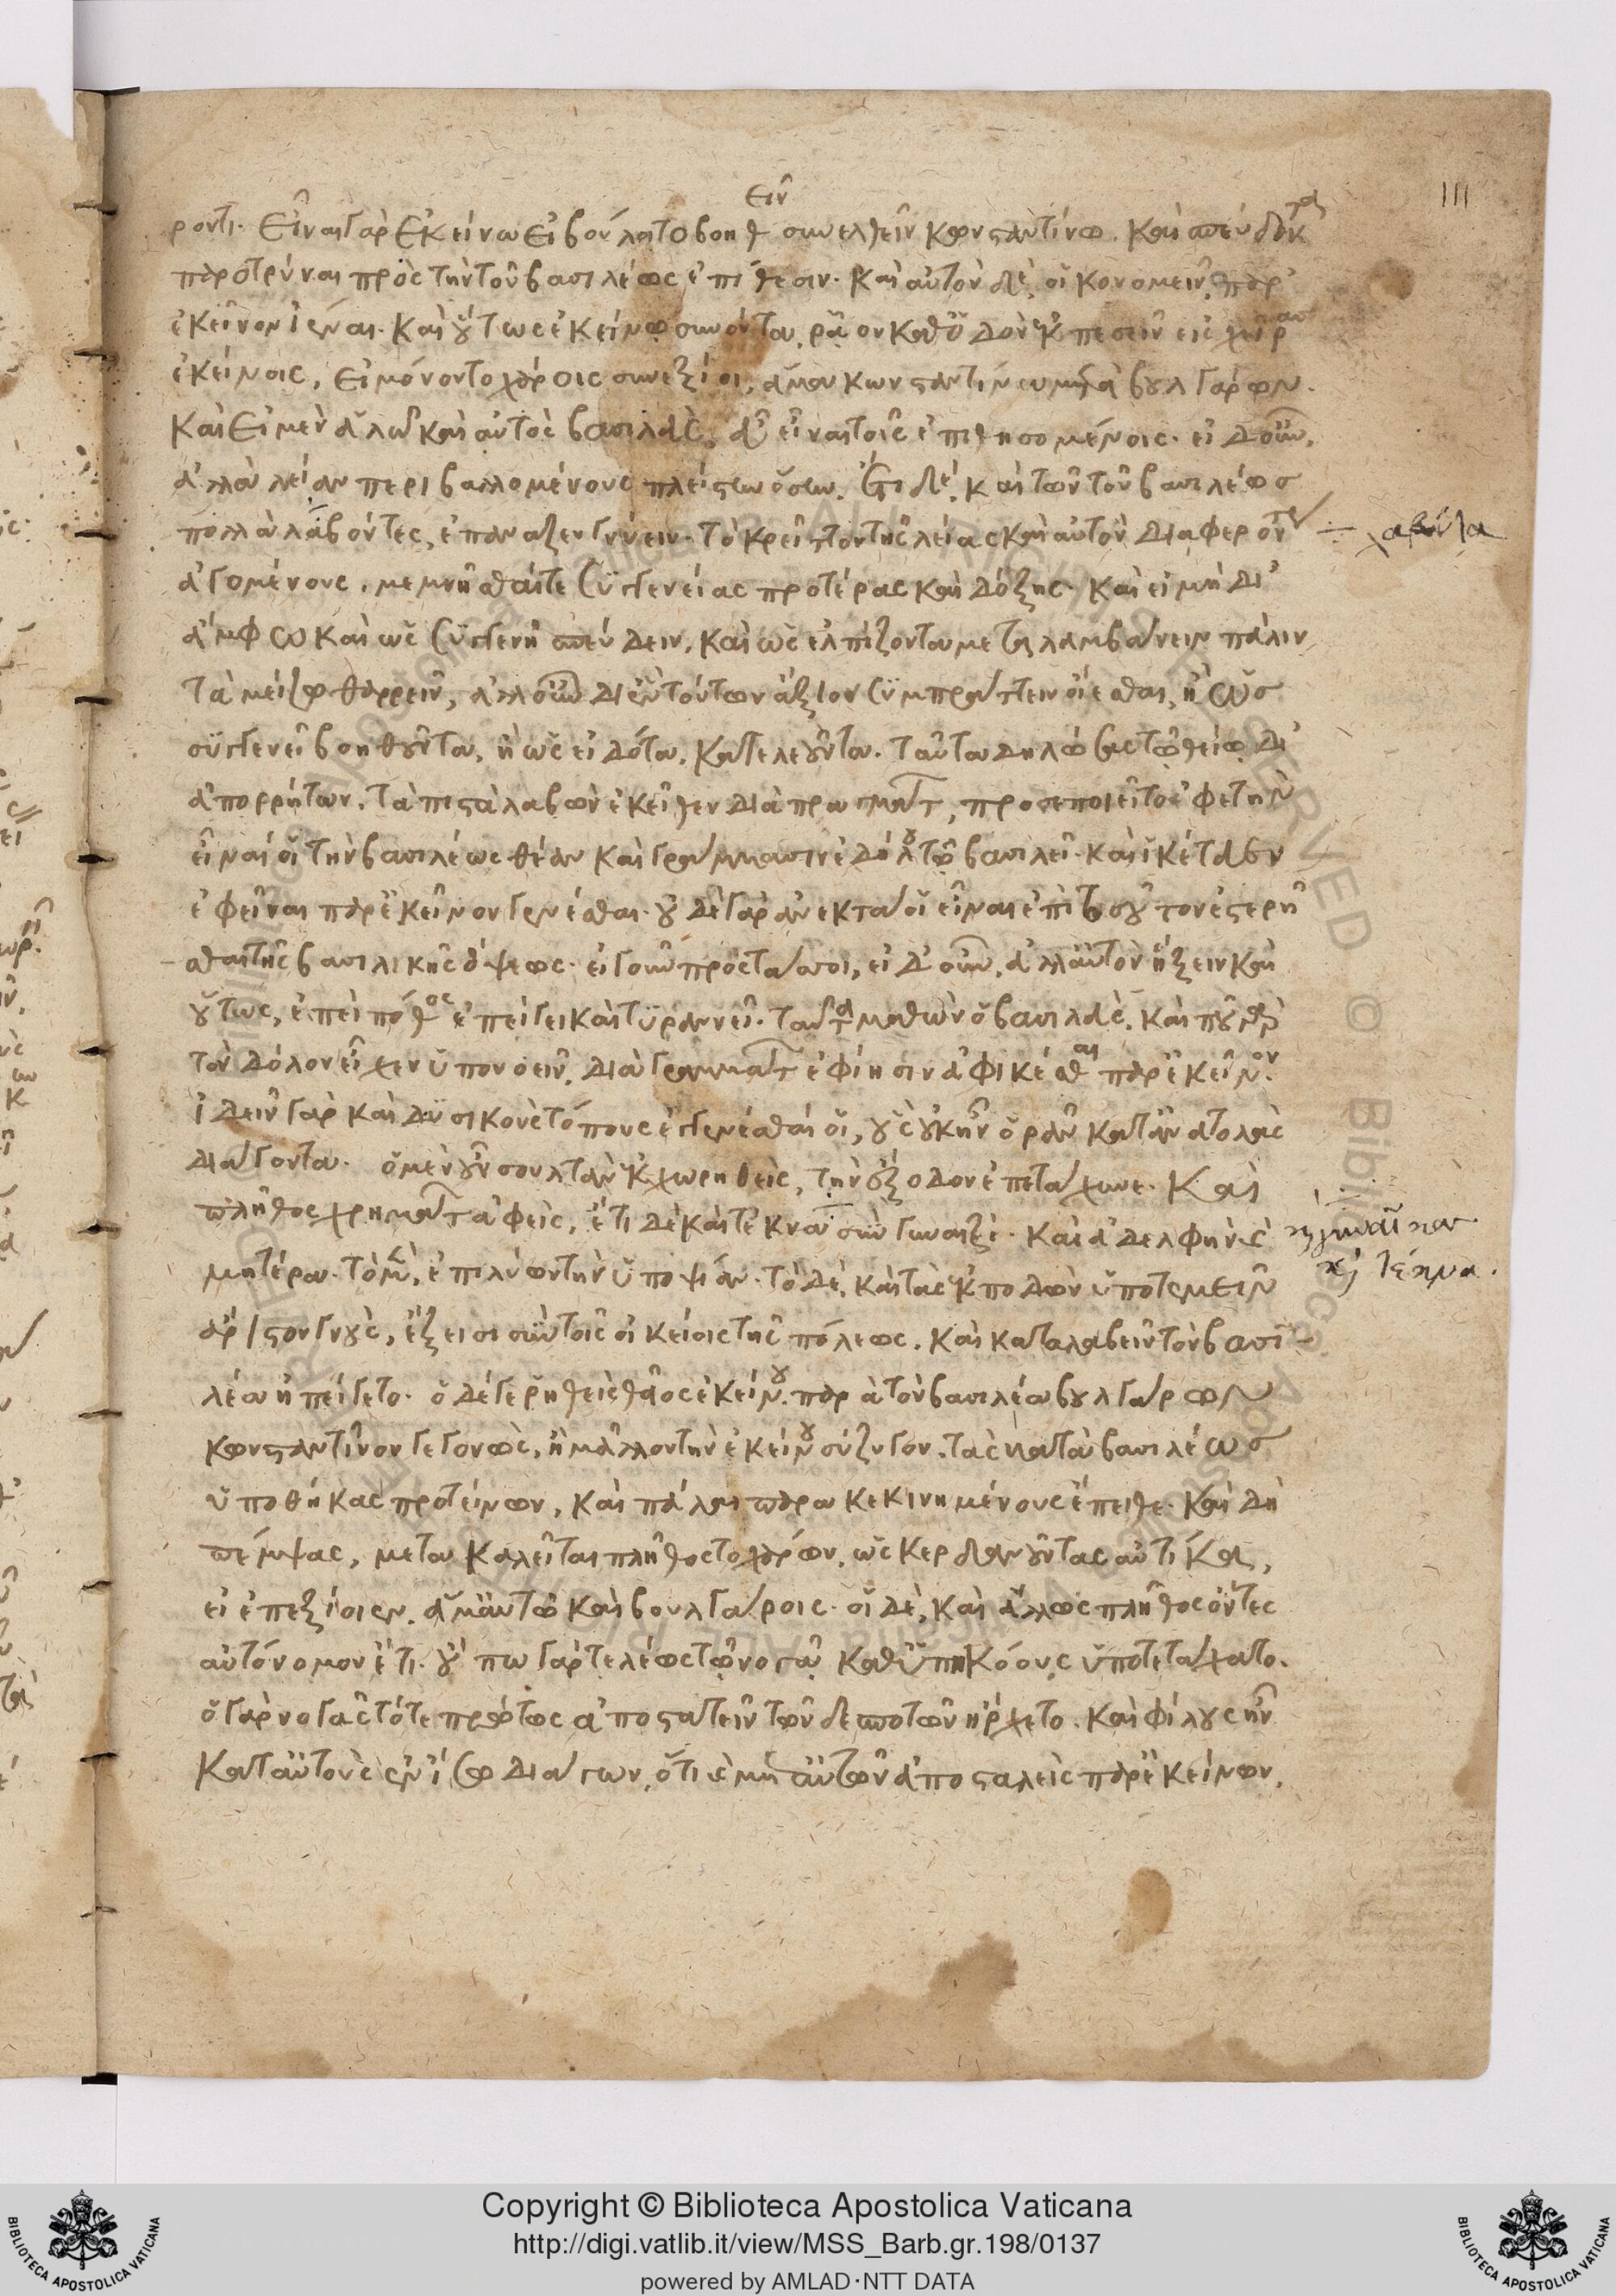 111
ροντι· εἶναι γὰρ ἐκείνω εἰ βούλοιτο βοηθεῖν συνελθεῖν κωνσταντίνω. καὶ σπεύδοντας
παροτρύναι πρὸς τὴν τοῦ βασιλέως ἐπίθεσιν· καὶ αὐτὸν δὲ οἰκονομεῖν παρ'
ἐκεῖνον ἰέναι· καὶ οὕτως ἐκείνω συνόντα, ῥᾶον καθ' ὁδὸν ἐκπεσεῖν εἰς χεῖρας
ἐκείνοις, εἰ μόνον τοχάροις συνεξίοι, ἅμα κωνσταντίνω μετὰ βουλγάρων.
καὶ εἰ μὲν ἁλῶ καὶ αὐτὸς βασιλεὺς, εὖ εἶναι τοῖς ἐπιθησομένοις· εἰ δ' οὖν,
ἀλλὰ λείαν περιβαλλομένους πλείστην ὅσην. ἔτι δὲ καὶ τῶν τοῦ βασιλέως
πολλὰ λαβόντες, ἐπαναζευγνύειν· τὸ κρεῖττον τῆς λείας καὶ αὐτὸν διαφερόντως
ἀγομένους. μεμνῆσθαί τε συγγενείας προτέρας καὶ δόξης· καὶ εἰ μὴ δι'
ἄμφω καὶ ὡς συγγενῆ σπεύδειν, καὶ ὡς ἐλπίζοντα μεταλαμβάνειν πάλιν
τὰ μείζω θαρρεῖν, ἀλλ' οὖν δι' ἓν τούτων ἄξιον συμπράττειν οἴεσθαι, ἢ ὡς
συγγενεῖ βοηθοῦντα, ἢ ὡς εἰδότα, κατελεοῦντα. ταῦτα δηλώσας τῶ θείω δι'
ἀπορρήτων, τὰ πιστὰ λαβὼν ἐκεῖθεν διὰ πραγμάτων, προσεποιεῖτο ἐφετὴν
εἶναί οἱ τὴν βασιλέως θέαν καὶ γράμμασιν ἐδήλου τῶ βασιλεῖ· καὶ ἱκέτευεν
ἐφεῖναι παρ' ἐκεῖνον γενέσθαι· οὐδὲ γὰρ ἀνεκτά οἱ εἶναι ἐπὶ τοσοῦτον ἐστερῆ
σθαι τῆς βασιλικῆς ὄψεως· εἰ γοῦν προστάσσοι, εἰ δ' οὖν, ἀλλ' αὐτὸν ἥξειν καὶ
οὕτως, ἐπεὶ πόθος ἐπείγει καὶ τυραννεῖ. ταῦτα μαθὼν ὁ βασιλεὺς, καὶ ποῦ γὰρ
τὸν δόλον εἶχεν ὑπονοεῖν, διὰ γραμμάτων ἐφίησιν ἀφικέσθαι παρ' ἐκεῖνον.
ἰδεῖν γὰρ καὶ δυσικοὺς τόπους ἐγγενέσθαι οἱ, οὓς οὐκ ἦν ὁρᾶν κατ' ἀνατολὰς
διάγοντα. ὁ μὲν οὖν σουλτὰν ἐκχωρηθεὶς, τὴν ἔξοδον ἐπετάχυνε. καὶ
πλῆθος χρημάτων ἀφεὶς, ἔτι δὲ καὶ τέκνα σὺν γυναιξὶ· καὶ ἀδελφὴν καὶ
μητέρα· τὸ μὲν, ἐπιλύων τὴν ὑποψίαν· τὸ δὲ, καὶ τὰς ἐκποδὼν ὑποτεμεῖν
ἀρίστου γνοὺς, ἔξεισι σὺν τοῖς οἰκείοις τῆς πόλεως. καὶ καταλαβεῖν τὸν βασι-
λέα ἠπείγετο. ὁ δέ γε ῥηθεὶς θεῖος ἐκείνου παρὰ τὸν βασιλέα βουλγάρων
κωνσταντῖνον γεγονὼς, ἢ μᾶλλον τὴν ἐκείνου σύζυγον, τὰς κατὰ βασιλέως
ὑποθήκας προτείνων, καὶ πάλαι παρακεκινημένους ἔπειθε. καὶ δὴ
πέμψας, μετακαλεῖται πλῆθος τοχάρων, ὡς κερδανοῦντας αὐτίκα,
εἰ ἐπεξίοιεν ἅμ' αὐτῶ καὶ βουλγάροις. οἱ δὲ, καὶ ἄλλως πλῆθος ὄντες
αὐτόνομον ἔτι. οὔπω γὰρ τελέως τῶ νογᾶ καθ' ὑπηκόους ὑποτετάχατο.
ὁ γὰρ νογᾶς τότε πρώτως ἀποστατεῖν τῶν δεσποτῶν ἤρχετο. καὶ φίλους ἦν
κατ' αὐτοὺς ἐν ἴσω διάγων, ὅτι μὴ αὐτῶν ἀποσταλεὶς παρ' ἐκείνων.
Copyright © Biblioteca Apostolica Vaticana
http://digi.vatlib.it/view/MSS_Barb.gr.198/0137
powered by AMLAD·NTT DATA
BIBLIOTECA APOSTOLICA VATICANA
BIBLIOTECA APOSTOLICA VATICANA